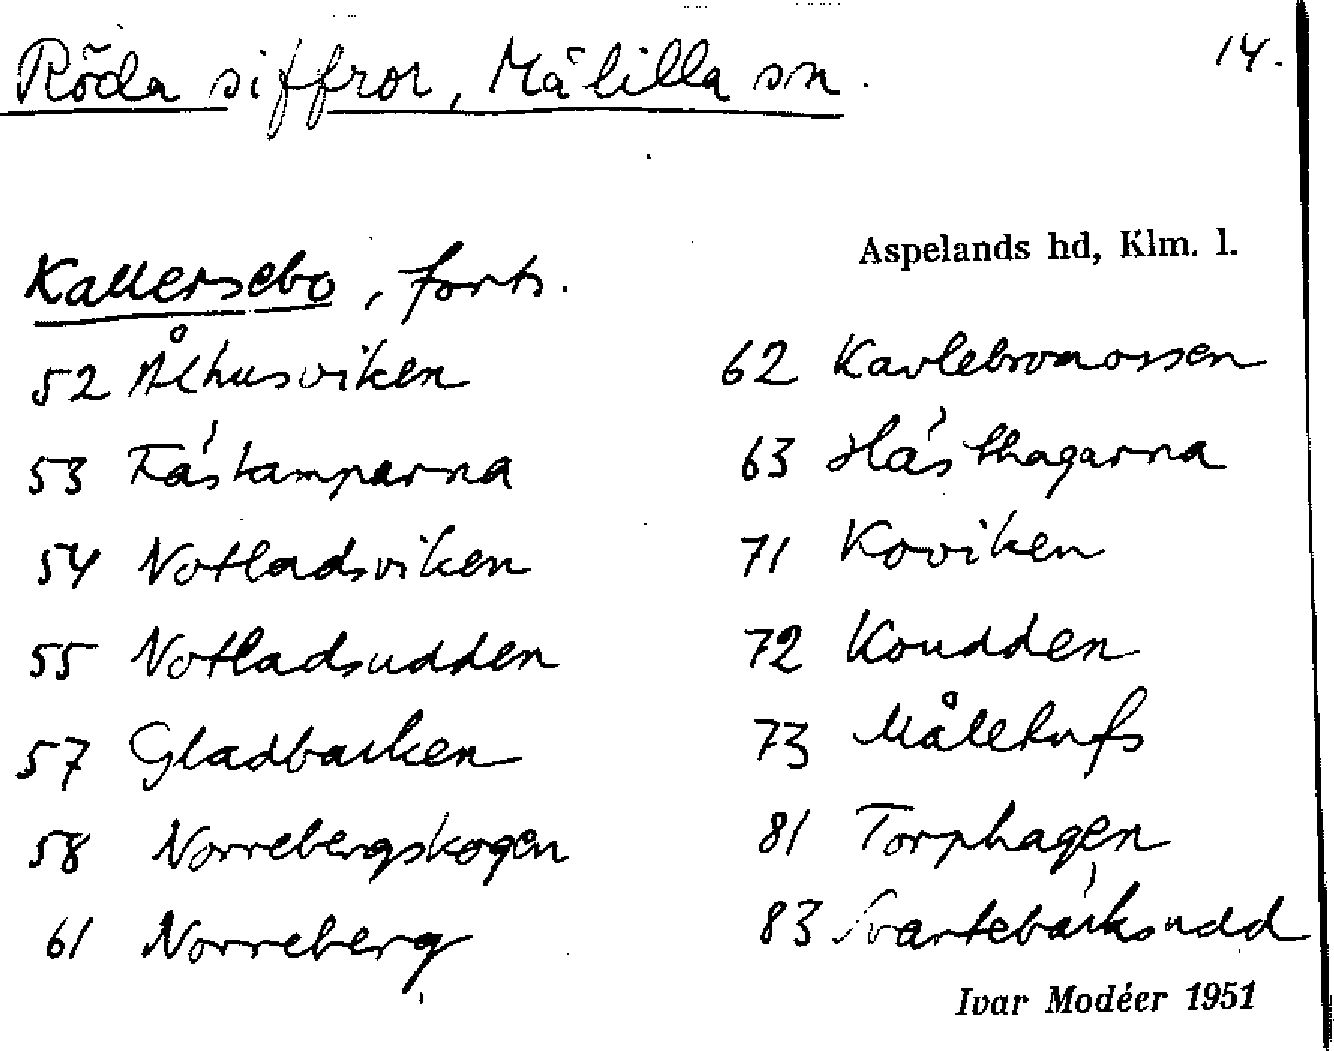 14.
Röda siffror, Målilla sn.
Aspelands hd, Klm. l.
Kallersebo, forts.
52 Ålhusviken
53 Fåstamparna
54 Notladsviken
55 Notladsudden
57 Gladbacken
58 Norrebergskogen
61 Norreberg
62 Kavlebromossen
63 Hästhagarna
71 Koviken
72 Koudden
73 Måletufs
81 Torphagen
83 Svartebäcksudd
Ivar Modéer 1951